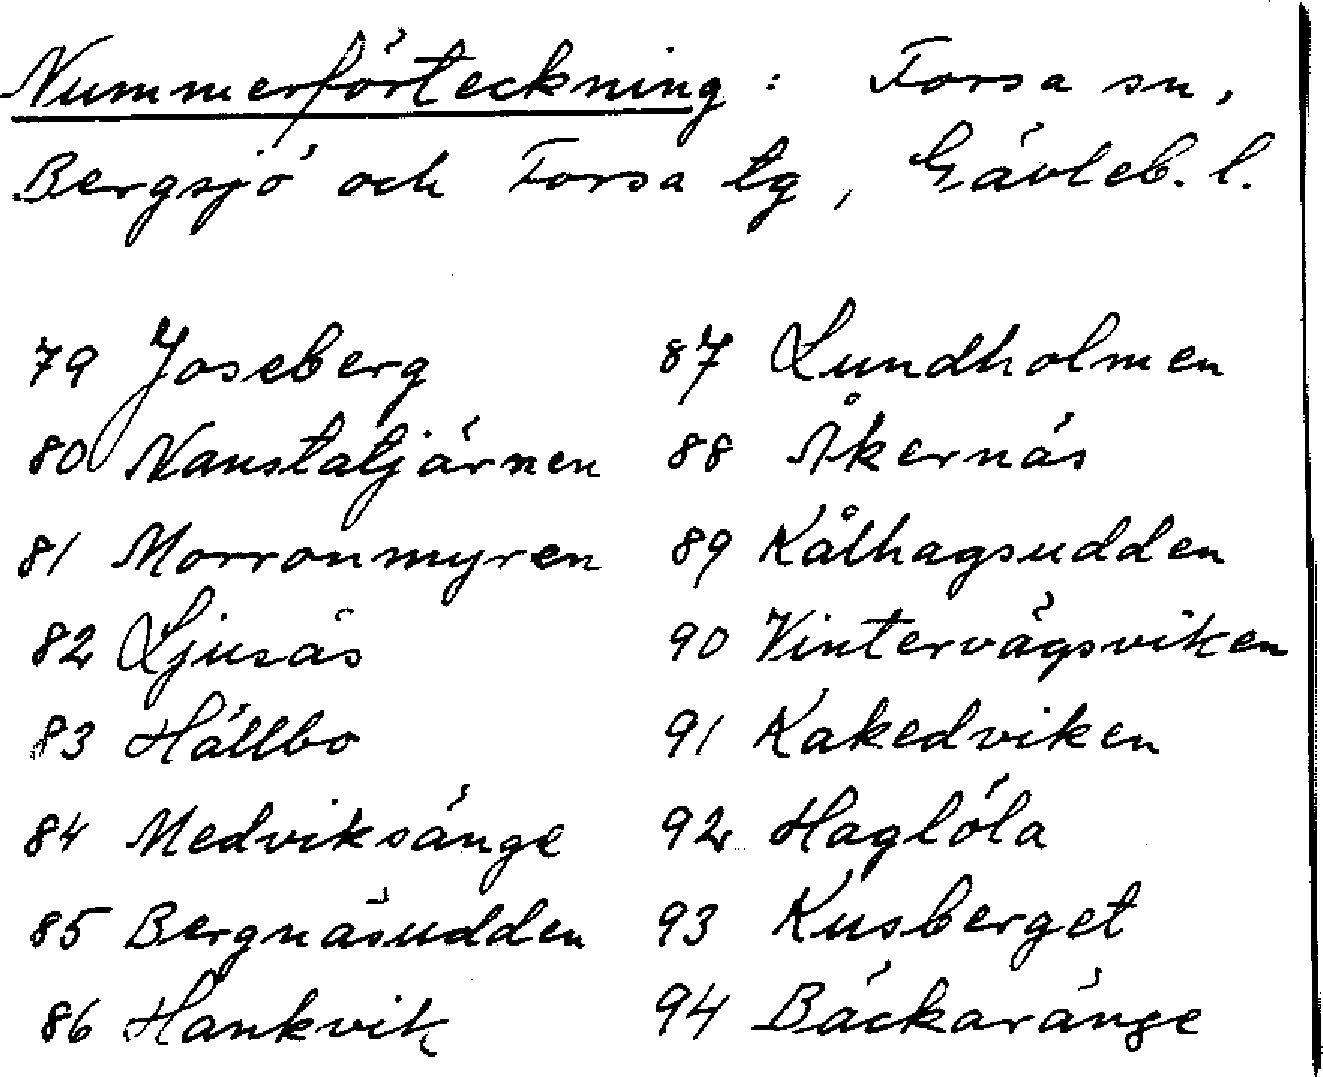 Nummerförteckning : Forsa sn,
Bergsjö och Forsa tg, Gävleb. l.
79 Joseberg
80 Nanstatjärnen
81 Morronmyren
82 Ljusås
83 Hällbo
84 Medviksänge
85 Bergnäsudden
86 Hankvik
87 Lundholmen
88 Åkernäs
89 Kålhagsudden
90 Vintervägsviken
91 Kakedviken
92 Haglöla
93 Kusberget
94 Bäckaränge